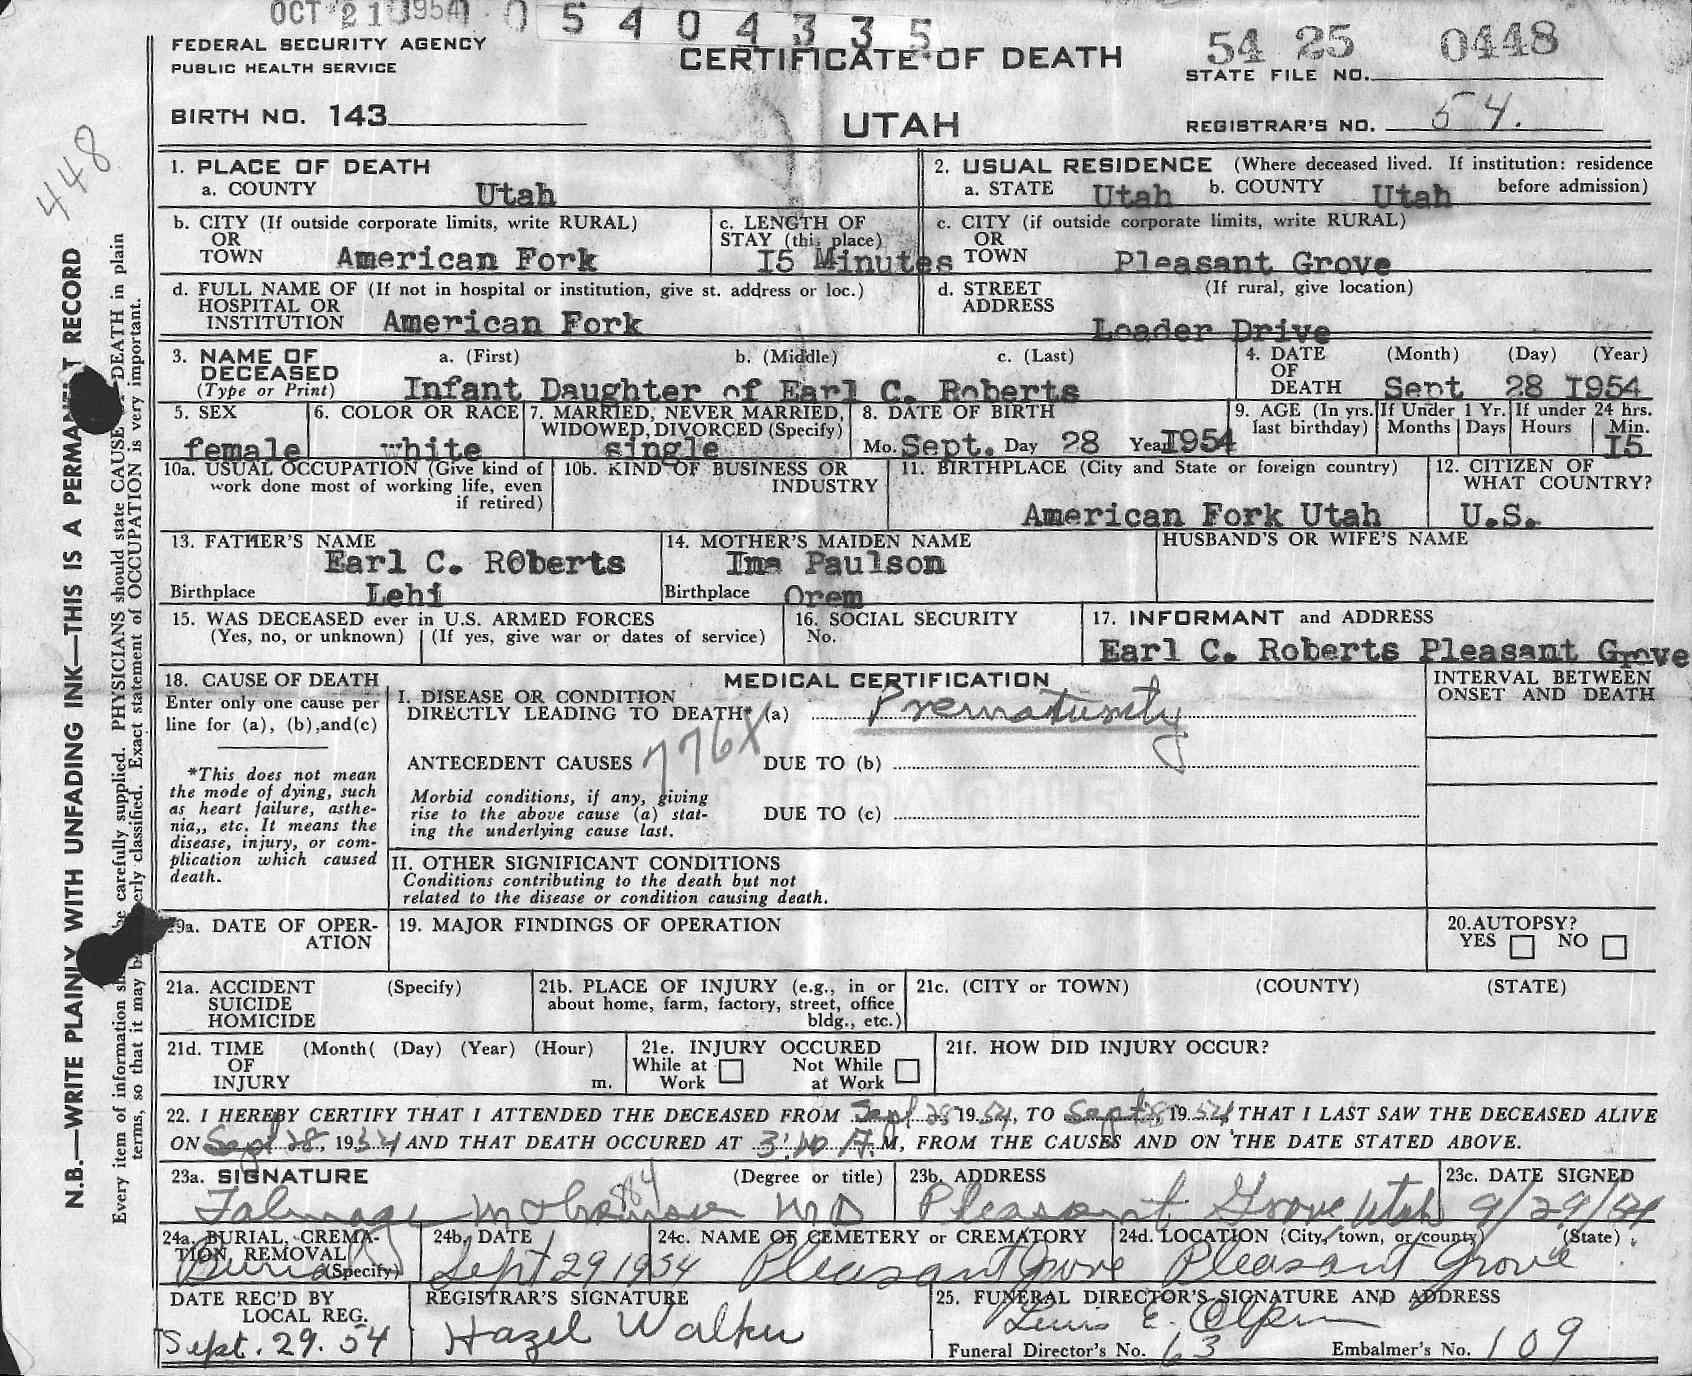 OCT 21 1954 0 5 4 0 4 3 3 5
FEDERAL SECURITY AGENCY
PUBLIC HEALTH SERVICE
CERTIFICATE OF DEATH
54 25 0448
STATE FILE NO.
BIRTH NO. 143
UTAH
REGISTRAR'S NO. 54.
448
N.B.—WRITE PLAINLY WITH UNFADING INK—THIS IS A PERMANENT RECORD
Every item of information be carefully supplied. PHYSICIANS should state CAUSE DEATH in plain
terms, so that it may be erly classified. Exact statement of OCCUPATION is very important.
1. PLACE OF DEATH
a. COUNTY Utah
2. USUAL RESIDENCE (Where deceased lived. If institution: residence
a. STATE Utah b. COUNTY Utah before admission)
b. CITY (If outside corporate limits, write RURAL)
OR
TOWN American Fork
c. LENGTH OF
STAY (this place)
I5 Minutes
c. CITY (if outside corporate limits, write RURAL)
OR
TOWN Pleasant Grove
d. FULL NAME OF (If not in hospital or institution, give st. address or loc.)
HOSPITAL OR
INSTITUTION American Fork
d. STREET (If rural, give location)
ADDRESS
Loader Drive
3. NAME OF a. (First) b. (Middle) c. (Last)
DECEASED
(Type or Print) Infant Daughter of Earl C. Roberts
4. DATE (Month) (Day) (Year)
OF
DEATH Sept 28 I954
5. SEX
female
6. COLOR OR RACE
white
7. MARRIED, NEVER MARRIED,
WIDOWED, DIVORCED (Specify)
single
8. DATE OF BIRTH
Mo. Sept. Day 28 Year I954
9. AGE (In yrs. If Under 1 Yr. If under 24 hrs.
last birthday) Months Days Hours Min.
I5
10a. USUAL OCCUPATION (Give kind of
work done most of working life, even
if retired)
10b. KIND OF BUSINESS OR
INDUSTRY
11. BIRTHPLACE (City and State or foreign country)
American Fork Utah
12. CITIZEN OF
WHAT COUNTRY?
U.S.
13. FATHER'S NAME
Earl C. ROberts
Birthplace Lehi
14. MOTHER'S MAIDEN NAME
Ina Paulson
Birthplace Orem
HUSBAND'S OR WIFE'S NAME
15. WAS DECEASED ever in U.S. ARMED FORCES
(Yes, no, or unknown) (If yes, give war or dates of service)
16. SOCIAL SECURITY
No.
17. INFORMANT and ADDRESS
Earl C. Roberts Pleasant Grove
18. CAUSE OF DEATH
Enter only one cause per
line for (a), (b),and(c)
*This does not mean
the mode of dying, such
as heart failure, asthe-
nia,, etc. It means the
disease, injury, or com-
plication which caused
death.
MEDICAL CERTIFICATION
INTERVAL BETWEEN
ONSET AND DEATH
I. DISEASE OR CONDITION
DIRECTLY LEADING TO DEATH* (a) Prematurity
776X
ANTECEDENT CAUSES DUE TO (b)
Morbid conditions, if any, giving
rise to the above cause (a) stat-
ing the underlying cause last.
DUE TO (c)
II. OTHER SIGNIFICANT CONDITIONS
Conditions contributing to the death but not
related to the disease or condition causing death.
19a. DATE OF OPER-
ATION
19. MAJOR FINDINGS OF OPERATION
20.AUTOPSY?
YES NO
21a. ACCIDENT (Specify)
SUICIDE
HOMICIDE
21b. PLACE OF INJURY (e.g., in or
about home, farm, factory, street, office
bldg., etc.)
21c. (CITY or TOWN) (COUNTY) (STATE)
21d. TIME (Month( (Day) (Year) (Hour)
OF
INJURY m.
21e. INJURY OCCURED
While at Not While
Work at Work
21f. HOW DID INJURY OCCUR?
22. I HEREBY CERTIFY THAT I ATTENDED THE DECEASED FROM Sept 28 1954, TO Sept 28 1954 THAT I LAST SAW THE DECEASED ALIVE
ON Sept 28, 1954 AND THAT DEATH OCCURED AT 3:10 M, FROM THE CAUSES AND ON THE DATE STATED ABOVE.
23a. SIGNATURE (Degree or title)
MD
23b. ADDRESS
Pleasant Grove Utah
23c. DATE SIGNED
9/29/54
24a. BURIAL, CREMA-
TION, REMOVAL
(Specify)
Burial
24b. DATE
Sept 29 1954
24c. NAME OF CEMETERY or CREMATORY
Pleasant Grove
24d. LOCATION (City, town, or county) (State)
Pleasant Grove
DATE REC'D BY
LOCAL REG.
Sept. 29. 54
REGISTRAR'S SIGNATURE
Hazel Walker
25. FUNERAL DIRECTOR'S SIGNATURE AND ADDRESS
E. Olpin
Funeral Director's No. 63 Embalmer's No. 109